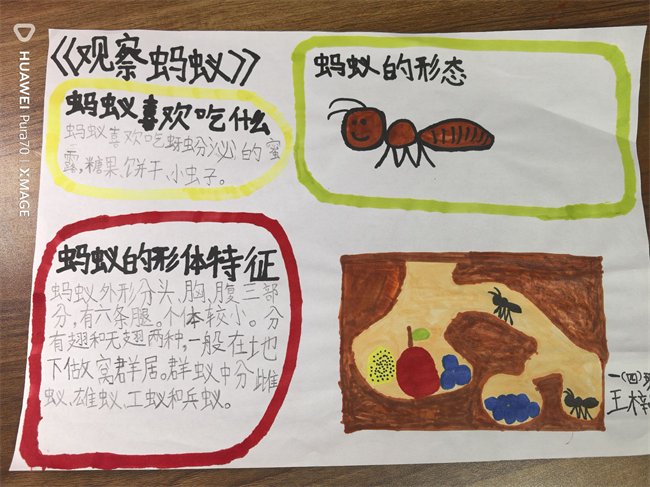 《观察蚂蚁》
蚂蚁喜欢吃什么
蚂蚁喜欢吃蚜虫分泌的蜜
露,糖果、饼干、小虫子。
蚂蚁的形态
蚂蚁的形体特征
蚂蚁外形分头、胸、腹三部
分,有六条腿。个体较小。分
有翅和无翅两种,一般在地
下做窝群居。群蚁中分雌
蚁、雄蚁、工蚁和兵蚁。
一(四)班
王梓
HUAWEI Pura70
XMAGE